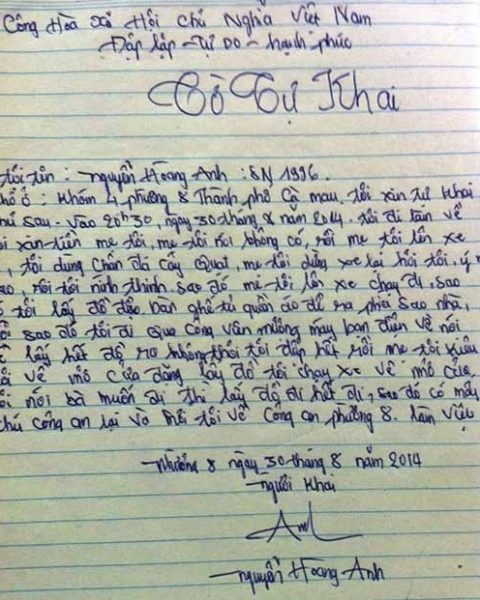 Công Hòa xã Hội chủ Nghĩa Việt Nam
Đập lập - Tự Do - hạnh phúc
Tờ Tự Khai
tôi tên : nguyễn Hoàng Anh : SN 1996.
hổ ở : Khóm 4 phường 8 Thành phố Cà mau, tôi xin tự khai
hư sau. Vào 20h30, ngày 30 tháng 8 năm 2014. tôi đi tán về
ôi xin tiền mẹ tôi, mẹ tôi nói không có, rồi mẹ tôi lên xe
, tôi dùng chân đá cây quạt, mẹ tôi dừng xe lại hỏi tôi, ý m
ao, rồi tôi nính thinh, sao đó mẹ tôi lên xe chạy đi, sao
ó tôi lấy đồ đạc bàn ghế tủ quần áo để ra phía sao nhà,
ồi sao đó tôi đi qua công văn mượng máy bạn điện về nói
lấy hết đồ ra không thôi tôi đập hết rồi mẹ tôi
ôi về mở cửa đăng lấy đồ tôi chạy xe về mở cửa,
ôi nói bà muốn đi thì lấy đồ đi hết đi, sao đó có mấy
hú công an lại và mời tôi về Công an phường 8. làm việc
Phường 8 ngày 30 tháng 8 năm 2014
người khai
Anh
nguyễn Hoàng Anh